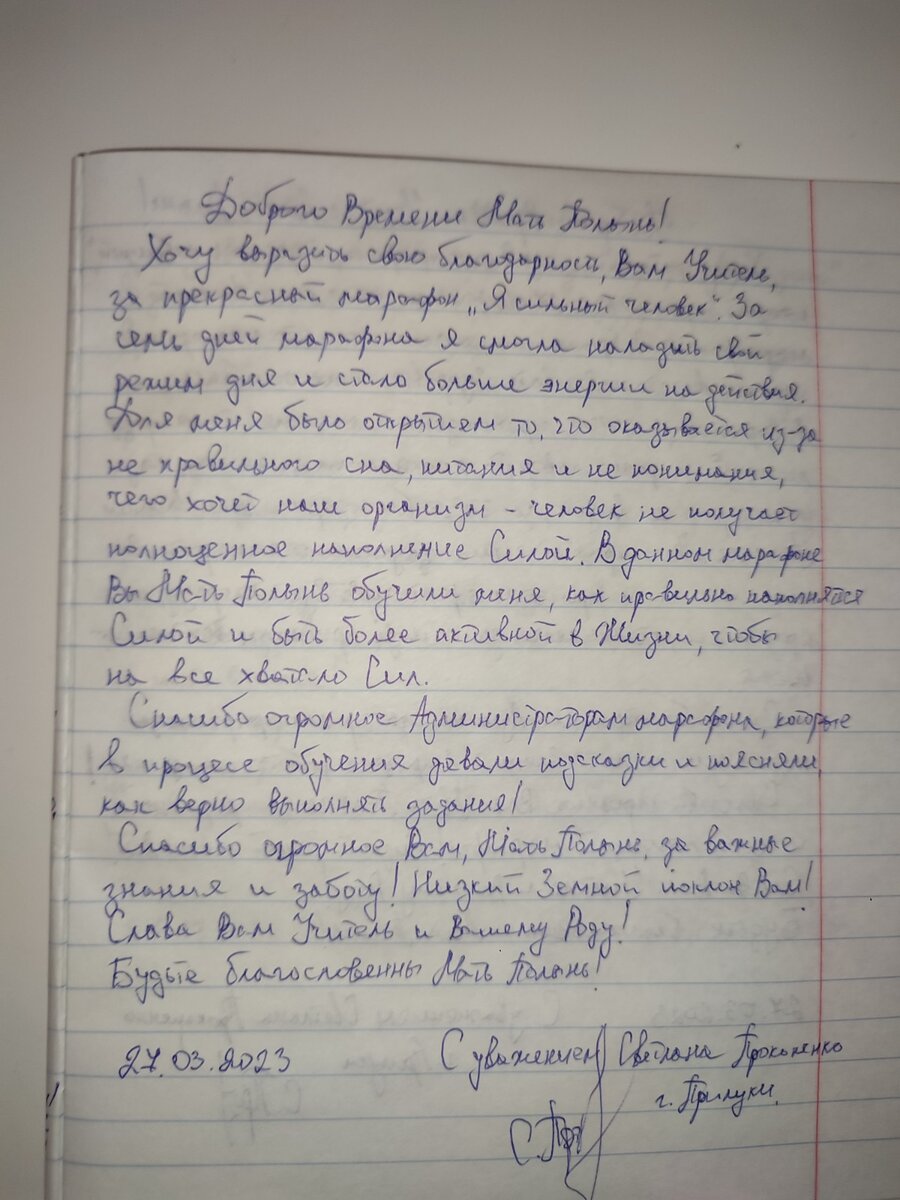 Доброго Времени Мать Полынь!
Хочу выразить свою благодарность, Вам Учитель,
за прекрасный марафон „Я сильный человек“. За
семь дней марафона я смогла наладить свой
режим дня и стало больше энергии на действия.
Для меня было открытием то, что оказывается из-за
не правильного сна, питания и не понимания,
чего хочет наш организм - человек не получает
полноценное наполнение Силой. В данном марафоне
Вы Мать Полынь обучили меня, как правильно наполнятся
Силой и быть более активной в Жизни, чтобы
на все хватало Сил.
Спасибо огромное Администраторам марафона, которые
в процесе обучения давали подсказки и поясняли
как верно выполнять задания!
Спасибо огромное Вам, Мать Полынь, за важные
знания и заботу! Низкий Земной поклон Вам!
Слава Вам Учитель и Вашему Роду!
Будьте благословенны Мать Полынь!
27.03.2023 С уважением Светлана Прокопенко
г. Прилуки.